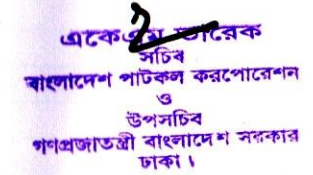 একেএম তারেক
সচিব
বাংলাদেশ পাটকল করপোরেশন
ও
উপসচিব
গণপ্রজাতন্ত্রী বাংলাদেশ সরকার
ঢাকা।